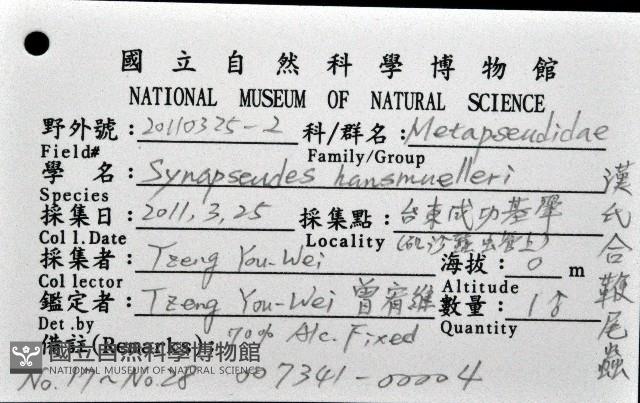 國立自然科學博物館
NATIONAL MUSEUM OF NATURAL SCIENCE
野外號：20110325-2 科/群名：Metapseudidae
Field# Family/Group
學 名：Synapseudes hansmuelleri
Species
採集日：2011,3,25 採集點：台東成功基翬
Col l. Date Locality (礁沙蠶蟲管上)
採集者：Tzeng You-Wei 海拔：0 m
Col lector Altitude
鑑定者：Tzeng You-Wei 曾宥維 數量：1♂
Det .by Quantity
備註(Remarks)：70% Alc. Fixed
No.17~No.28 007341-00004
漢氏合鞭尾蟲
國立自然科學博物館
NATIONAL MUSEUM OF NATURAL SCIENCE